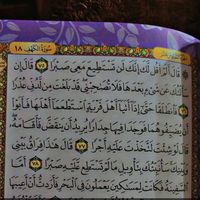 سُورَةُ الكَهْفِ ١٨
قَالَ أَلَمْ أَقُل لَّكَ إِنَّكَ لَن تَسْتَطِيعَ مَعِىَ صَبْرًا ٧٥ قَالَ إِن
سَأَلْتُكَ عَن شَىْءٍۭ بَعْدَهَا فَلَا تُصَٰحِبْنِى قَدْ بَلَغْتَ مِن لَّدُنِّى عُذْرًا
٧٦ فَٱنطَلَقَا حَتَّىٰٓ إِذَآ أَتَيَآ أَهْلَ قَرْيَةٍ ٱسْتَطْعَمَآ أَهْلَهَا فَأَبَوْا۟
أَن يُضَيِّفُوهُمَا فَوَجَدَا فِيهَا جِدَارًا يُرِيدُ أَن يَنقَضَّ فَأَقَامَهُۥ
قَالَ لَوْ شِئْتَ لَتَّخَذْتَ عَلَيْهِ أَجْرًا ٧٧ قَالَ هَٰذَا فِرَاقُ بَيْنِى
وَبَيْنِكَ سَأُنَبِّئُكَ بِتَأْوِيلِ مَا لَمْ تَسْتَطِع عَّلَيْهِ صَبْرًا ٧٨ أَمَّا
ٱلسَّفِينَةُ فَكَانَتْ لِمَسَٰكِينَ يَعْمَلُونَ فِى ٱلْبَحْرِ فَأَرَدتُّ أَنْ أَعِيبَهَا